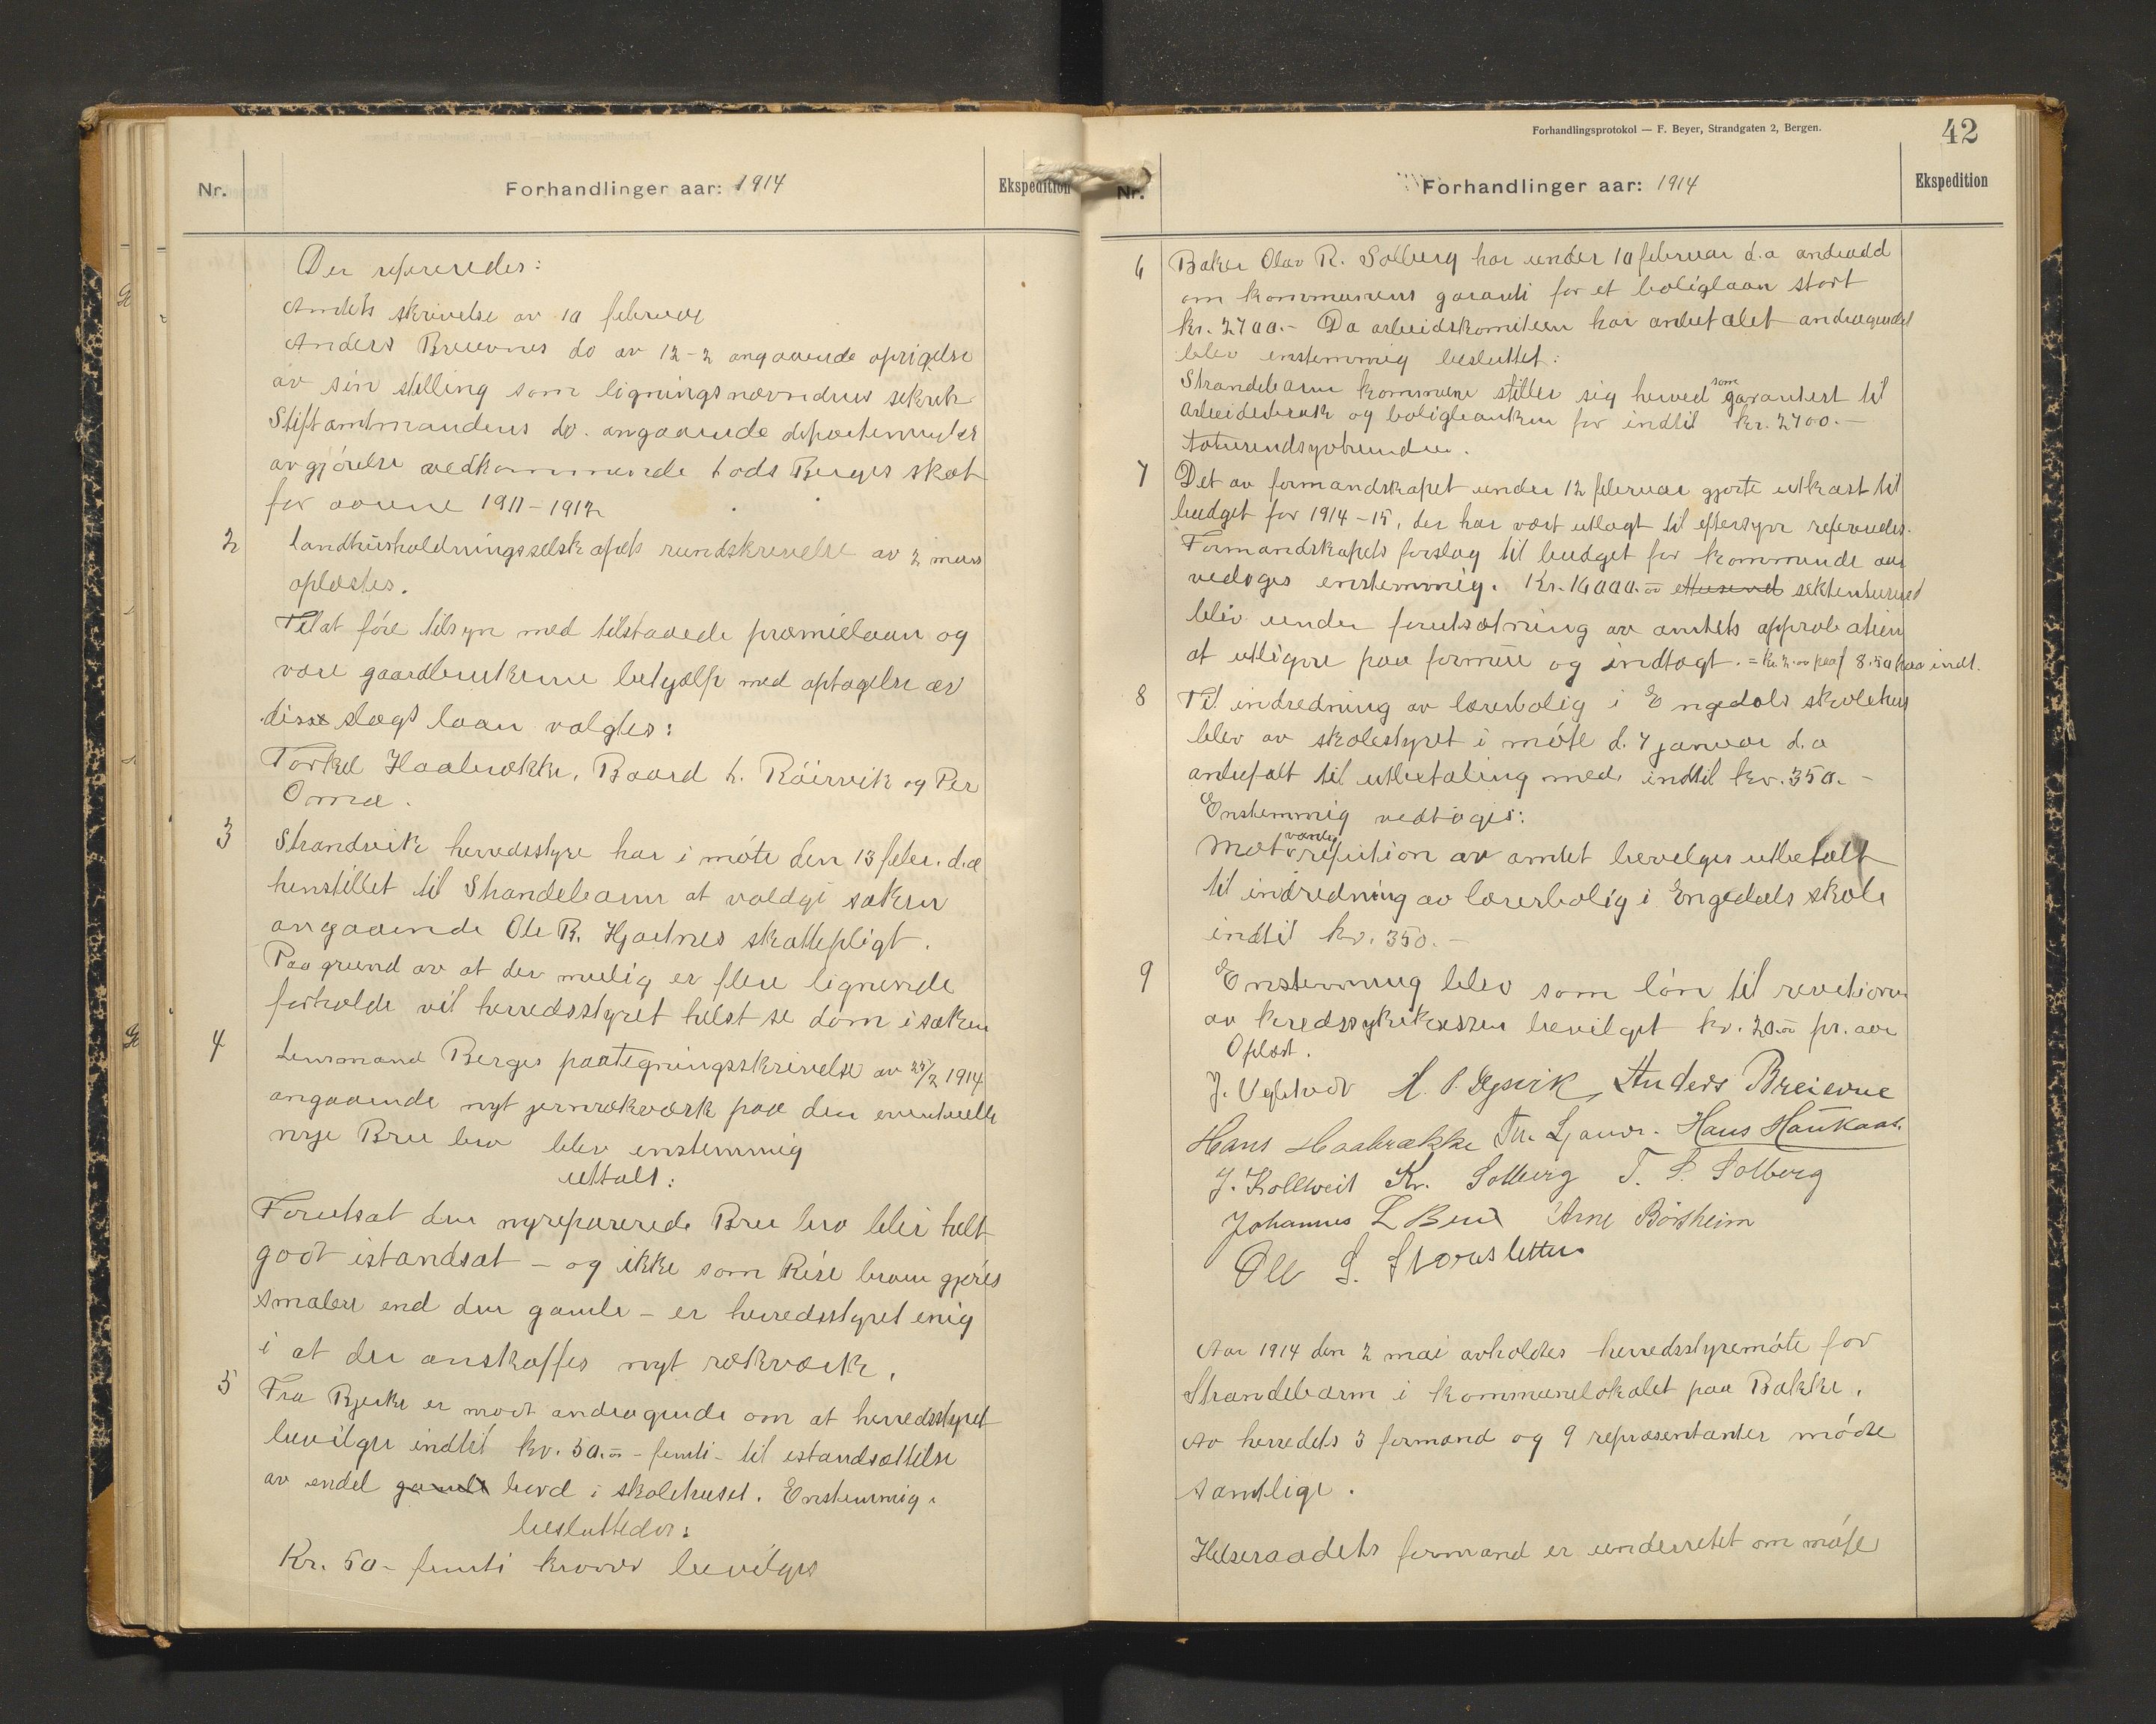 Nr.
Forhandlinger aar: 1914
Ekspedition
Der refereredes:
Amtets skrivelse av 10 februar
Anders Breievnes do av 12-2 angaaende opsigelse
av sin stilling som ligningsnævndens sekretr
Stiftamtmandens do. angaaende departementets
avgjörelse vedkommende Lods Berges skat
for aarene 1911-1912
2 Landhusholdningsselskapets rundskrivelse av 2 mars
oplæstes.
Til at före tilsyn med tilstaaede præmielaan og
være gaardbrukerne behjælp med optagelse av
disse slags laan valgtes:
Torkel Haabrække, Baard L. Röirvik og Per
Oma.
3 Strandvik herredsstyre har i möte den 13 febr. d.a
henstillet til Strandebarm at voldgi saken
angaaende Ole R. Hjartnes skattepligt.
Paa grund av at der mulig er flere lignende
forholde vil herredsstyret helst se dom i saken
4 Lensmand Berges paategningsskrivelse av 25/2 1914
angaaende nyt jernrækværk paa den eventuelle
nye Bru bro blev enstemmig
uttalt:
Forutsat den nyreparerede Bru bro blir helt
godt istandsat - og ikke som Rise broen gjöres
smalere end den gamle - er herredsstyret enig
i at der anskaffes nyt rækværk.
5 Fra Bjerke er mott andragende om at herredsstyret
bevilger indtil kr. 50.00 - femti - til istandsættelse
av endel gamle bord i skolehuset. Enstemmig
besluttedes:
Kr. 50 - femti kroner bevilges
Forhandlingsprotokol — F. Beyer, Strandgaten 2, Bergen.
42
Nr.
Forhandlinger aar: 1914
Ekspedition
6 Baker Olav R. Solberg har under 10 februar d.a andradd
om kommunens garanti for et boliglaan stort
kr. 2700.- Da arbeidskomiteen har anbefalet andragendet
blev enstemmig besluttet:
Strandebarm kommune stiller sig herved som garantert til
Arbeiderbruk og boligbanken for indtil kr. 2700.-
totusendsyvhundre.
7 Det av formandskapet under 12 februar gjorte utkast til
budget for 1914-15, der har vært utlagt til eftersyn refereredes.
Formandskapets forslag til budget for kommende aar
vedoges enstemmig. Kr. 16000.00 ettusend sekstentusend
blev under forutsætning av amtets approbation
at utligne paa formue og indtægt. = kr. 2.00 paa f 8.50 paa indt.
8 Til indredning av lærerbolig i Engedals skolehus
blev av skolestyret i möte d. 7 januar d.a
anbefalt til utbetaling med indtil kr. 350.-
Enstemmig vedtoges:
Mot vanlig refution av amtet bevilges utbetalt
til indredning av lærerbolig i Engedals skole
indtil kr. 350.-
9 Enstemmig blev som lön til revetionen
av kredssykekassen bevilget kr. 20.00 pr. aar
Oplæst.
Anders Breievne
Hans Haabrække Hans Haukaas.
Kr. Solberg T. S. Solberg
Johannes L Berge Arne Börsheim
Ole S. Storesletten
Aar 1914 den 2 mai avholdtes herredsstyremöte for
Strandebarm i kommunelokalet paa Bakke.
Av herredets 3 formænd og 9 repræsentanter mödte
samtlige.
Helseraadets formand er underretet om möte